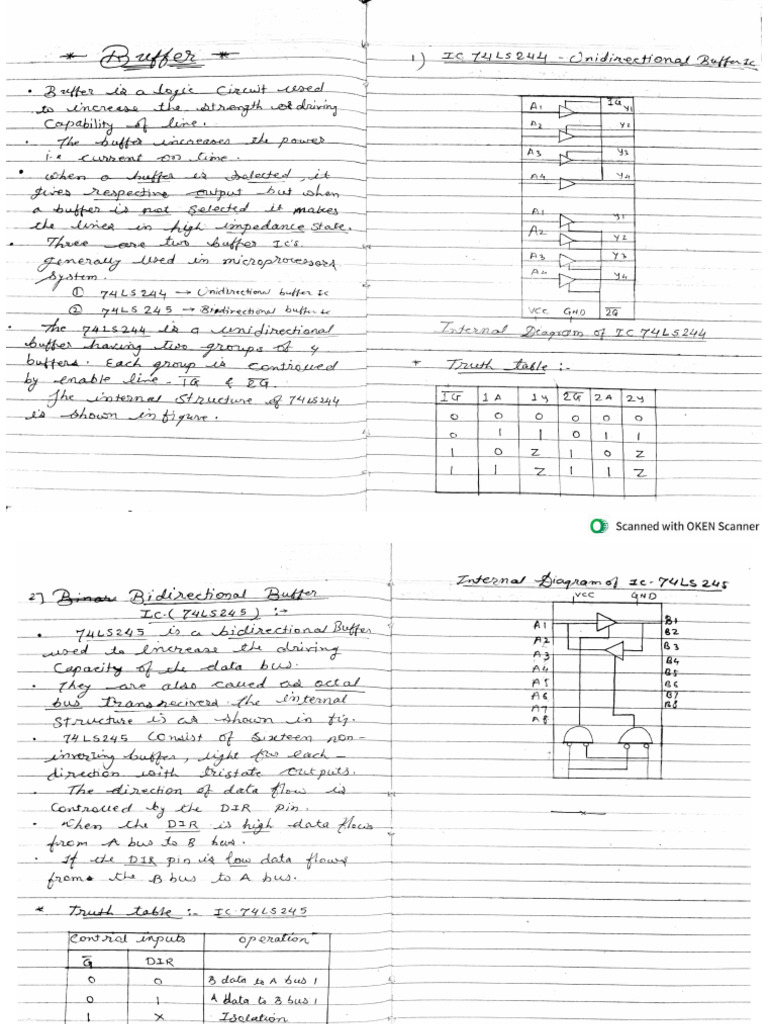 * Buffer *
• Buffer is a logic circuit used
to increase the strength or driving
Capability of line.
• The buffer increases the power
i.e current on line.
• When a buffer is selected, it
gives respective output but when
a buffer is not selected it makes
the lines in high impedance state.
• Three are two buffer IC's
generally used in microprocessors
system.
① 74LS244 → Unidirectional buffer Ic
② 74LS 245 → Bidirectional buffer Ic
• The 74LS244 is a unidirectional
buffer having two groups of 4
buffers. Each group is controlled
by enable line - 1G & 2G.
The internal structure of 74LS244
is shown in figure.
1) IC 74LS244 - Unidirectional Buffer Ic
A1 1G Y1
A2 Y2
A3 Y3
A4 Y4
A1 Y1
A2 Y2
A3 Y3
A4 Y4
VCC GND 2G
Internal Diagram of IC 74LS244
* Truth table :-
1G 1A 1Y 2G 2A 2Y
0 0 0 0 0 0
0 1 1 0 1 1
1 0 Z 1 0 Z
1 1 Z 1 1 Z
Scanned with OKEN Scanner
2) Bidirectional Buffer
IC. (74LS245) :-
• 74LS245 is a bidirectional Buffer
used to increase the driving
Capacity of the data bus.
• They are also called as octal
bus transrecivers the internal
structure is as shown in fig.
• 74LS245 Consist of Sixteen non-
inverting buffer, light for each-
direction with tristate outputs.
• The direction of data flow is
Controlled by the DIR pin.
• When the DIR is high data flows
from A bus to B bus.
• If the DIR pin is low data flows
from the B bus to A bus.
* Truth table :- IC 74LS245
Control inputs operation
G DIR
0 0 B data to A bus 1
0 1 A data to B bus 1
1 X Isolation
Internal Diagram of IC-74LS 245
VCC GND
A1 B1
A2 B2
A3 B3
A4 B4
A5 B5
A6 B6
A7 B7
A8 B8